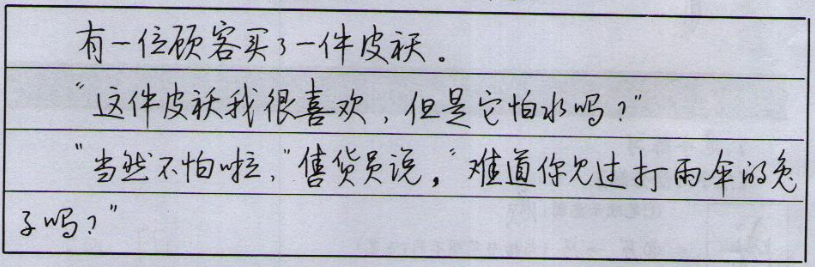 有一位顾客买了一件皮袄。
“这件皮袄我很喜欢,但是它怕水吗?”
“当然不怕啦,”售货员说,“难道你见过打雨伞的兔
子吗?”